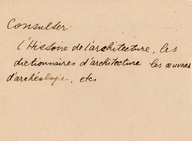 Consulter
l'Histoire de l'architecture, les
dictionnaires d'architecture les œuvres
d'archéologie, etc